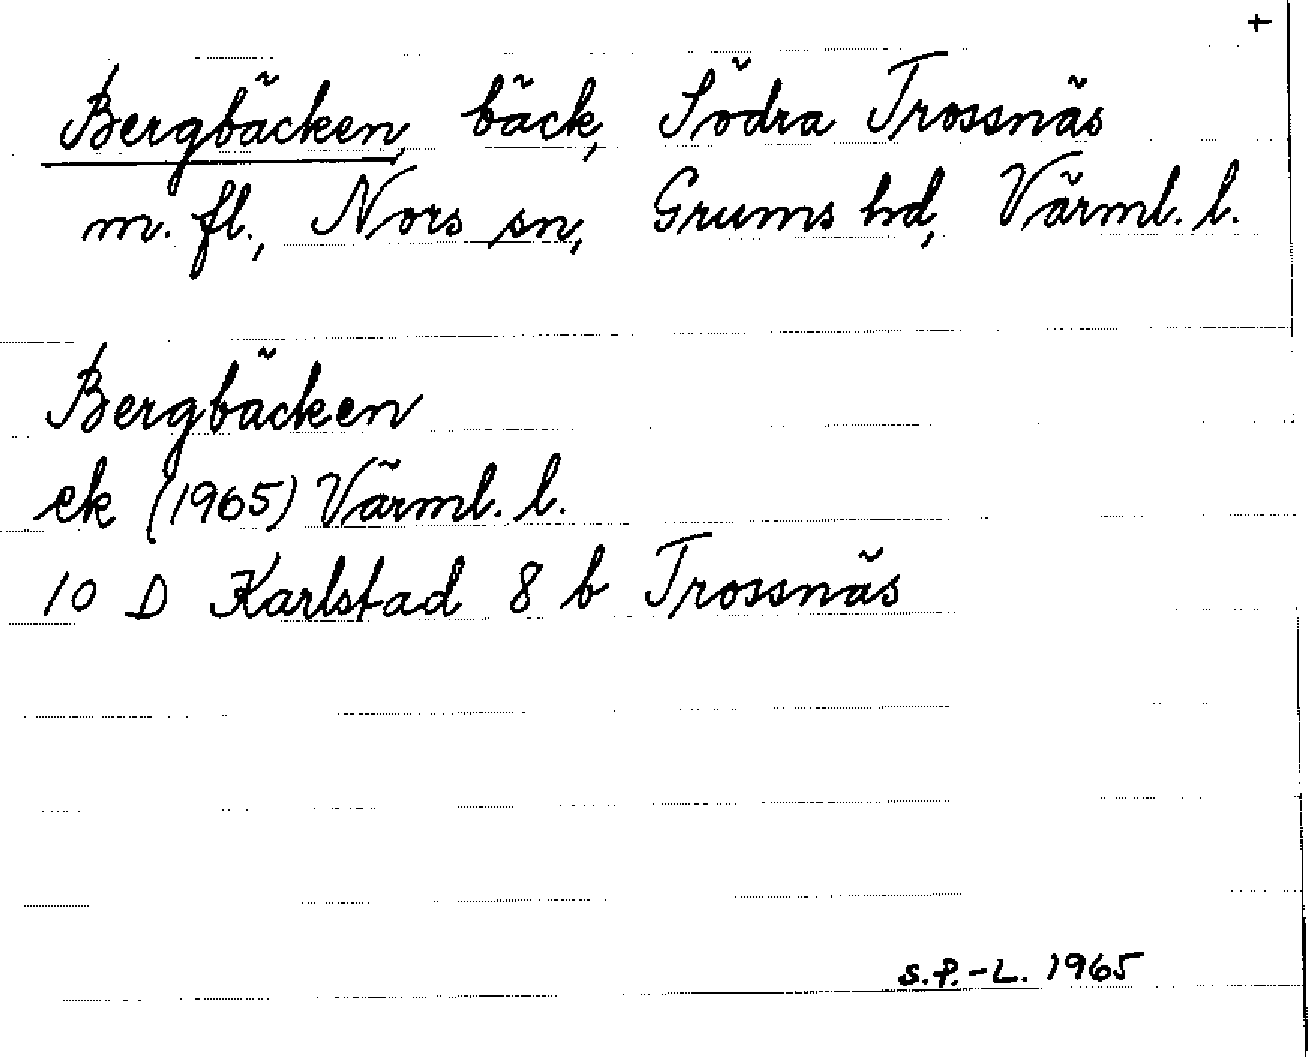 +
Bergbäcken, bäck, Södra Trossnäs
m. fl., Nors sn, Grums hd, Värml. l.
Bergbäcken
ek (1965) Värml. l.
10 D Karlstad 8 b Trossnäs
S.P.-L. 1965